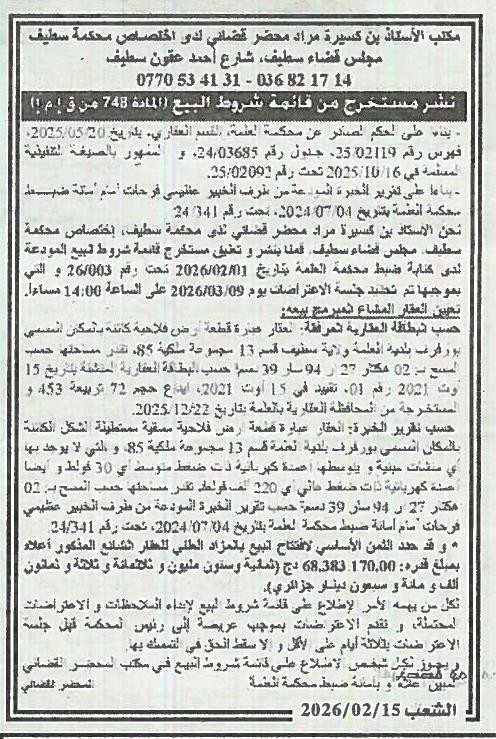 مكتب الأستاذ بن كسيرة مراد محضر قضائي لدى اختصاص محكمة سطيف
مجلس قضاء سطيف، شارع أحمد عقون سطيف
0770 53 41 31 - 036 82 17 14
نشر مستخرج من قائمة شروط البيع (المادة 748 من ق إ م إ)
- بناء على الحكم الصادر عن محكمة العلمة، القسم العقاري، بتاريخ 2025/05/20،
فهرس رقم 25/02119، جدول رقم 24/03685، و الممهور بالصيغة التنفيذية
المسلمة في 2025/10/16 تحت رقم 25/02092.
- بناءا على تقرير الخبرة المودعة من طرف الخبير عظيمي فرحات أمام أمانة ضبط
محكمة العلمة بتاريخ 2024/07/04، تحت رقم 24/341
نحن الأستاذ بن كسيرة مراد محضر قضائي لدى محكمة سطيف، إختصاص محكمة
سطيف، مجلس قضاء سطيف، قمنا بنشر و تعليق مستخرج قائمة شروط البيع المودعة
لدى كتابة ضبط محكمة العلمة بتاريخ 2026/02/01 تحت رقم 26/003 و التي
بموجبها تم تحديد جلسة الاعتراضات يوم 2026/03/09 على الساعة 14:00 مساءا.
تعيين العقار المشاع المبرمج بيعه:
حسب البطاقة العقارية المرفقة: العقار عبارة قطعة أرض فلاحية كائنة بالمكان المسمى
بورفرف بلدية العلمة ولاية سطيف قسم 13 مجموعة ملكية 85، تقدر مساحتها حسب
المسح بـ: 02 هكتار 27 آر 94 سآر 39 دسم² حسب البطاقة العقارية المنشأة بتاريخ 15
أوت 2021 رقم 01، تقييد في 15 أوت 2021، إيداع حجم 72 تربيعة 453 و
المستخرجة من المحافظة العقارية بالعلمة بتاريخ 2025/12/22.
حسب تقرير الخبرة: العقار عبارة قطعة أرض فلاحية مسقية مستطيلة الشكل الكائنة
بالمكان المسمى بورفرف بلدية العلمة قسم 13 مجموعة ملكية 85، و التي لا يوجد بها
أي منشآت مبنية و يتوسطها أعمدة كهربائية ذات ضغط متوسط أي 30 فولط و أيضا
أعمدة كهربائية ذات ضغط عالي أي 220 ألف فولط، تقدر مساحتها حسب المسح بـ: 02
هكتار 27 آر 94 سآر 39 دسم² حسب تقرير الخبرة المودعة من طرف الخبير عظيمي
فرحات أمام أمانة ضبط محكمة العلمة بتاريخ 2024/07/04، تحت رقم 24/341
* و قد حدد الثمن الأساسي لافتتاح البيع بالمزاد العلني للعقار الشائع المذكور أعلاه
بمبلغ قدره: 68.383.170,00 دج (ثمانية وستون مليون و ثلاثمائة و ثلاثة و ثمانون
ألف و مائة و سبعون دينار جزائري).
لكل من يهمه الأمر الإطلاع على قائمة شروط البيع لإبداء الملاحظات و الاعتراضات
المحتملة، و تقدم الاعتراضات بموجب عريضة إلى رئيس المحكمة قبل جلسة
الاعتراضات بثلاثة أيام على الأقل و إلا سقط الحق في التمسك بها
و يجوز لكل شخص الاطلاع على قائمة شروط البيع في مكتب المحضر القضائي
المبين أعلاه و بأمانة ضبط محكمة العلمة المحضر القضائي
الشعب 2026/02/15